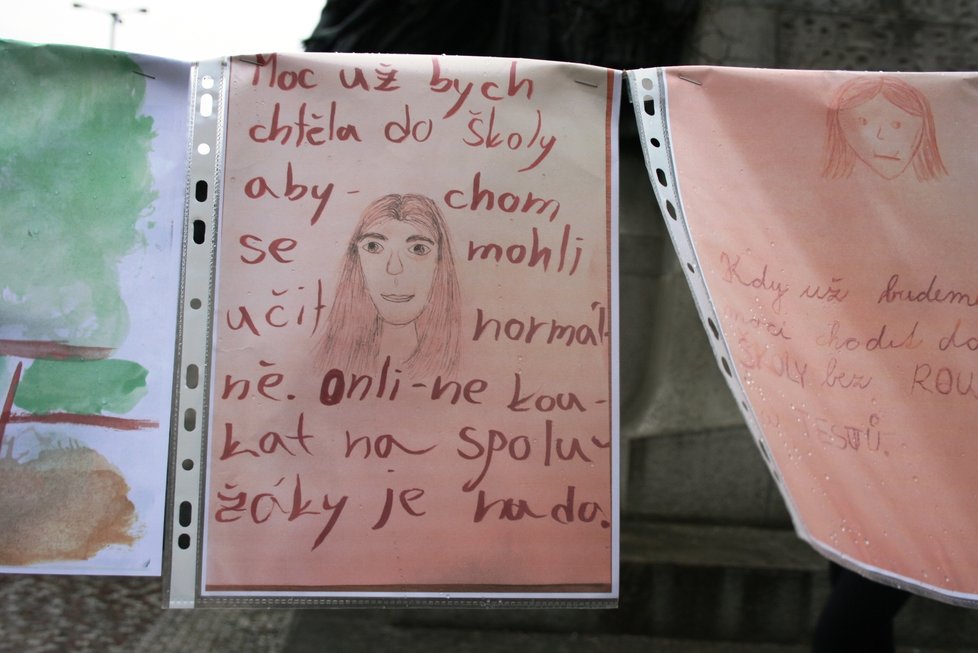 Moc už bych
chtěla do školy
aby- chom
se mohli
učit normál-
ně. Onli-ne kou-
kat na spolu-
žáky je nuda.
Kdy už budem
chodit do
ŠKOLY bez ROU
TESTŮ.